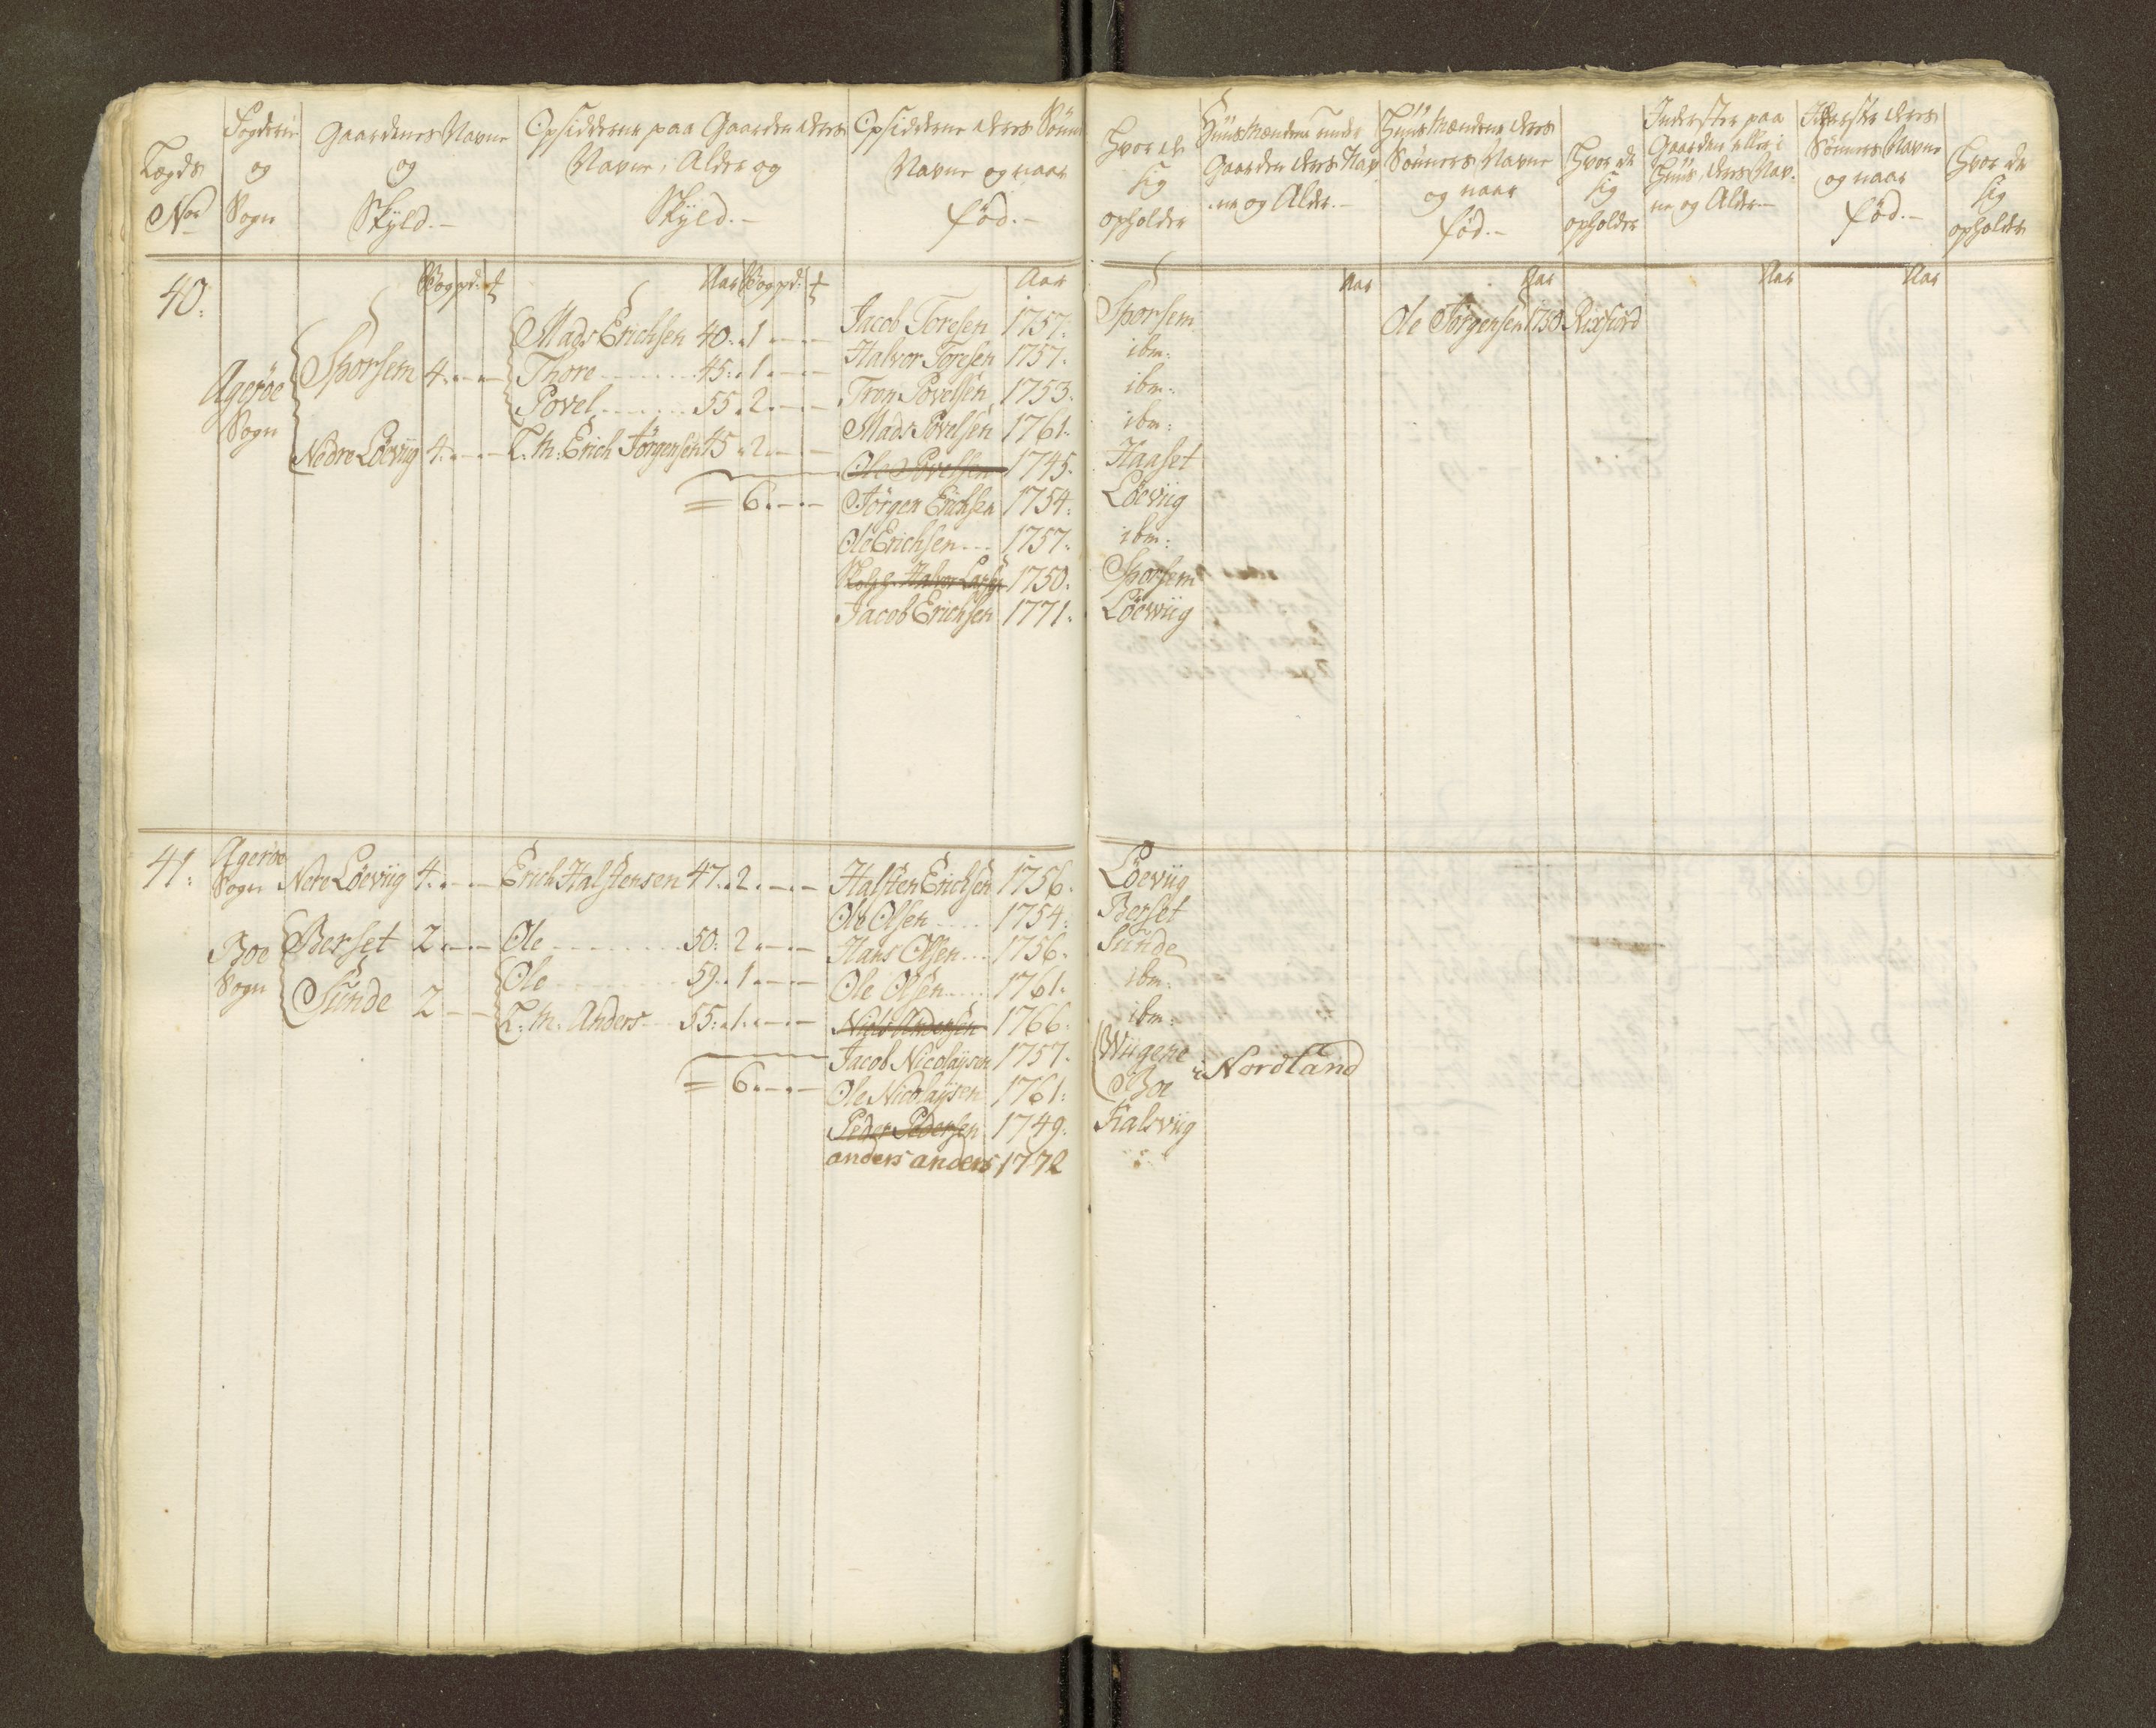 Lægds No | Fogderie og Sogn | Gaardenes Navne og Skyld.- | Opsidderne paa Gaarden deres Navne, Alder og Skyld.- | Opsidderne deres Sønners Navne og naar fød.- | Hvor de sig opholder | Huusmændene under Gaarden deres Navne og Alder.- | Huusmændene deres Sønners Navne og naar fød.- | Hvor de sig opholder | Inderster paa Gaarden eller i Huus, deres Navne og Alder.- | Inderster deres Sønners Navne og naar fød.- | Hvor de sig opholder
Vog pd: | Aar Vog pd: | Aar | Aar | Aar | Aar | Aar
40:
Agerøe Sogn
Sporsem 4.
Nedre Löeviig 4.
Mads Erichsen 40. 1
Thore 45. 1
Povel 55. 2
L: M: Erich Jörgensen 45. 2
= 6.
Jacob Toresen 1757. Sporsem
Halvor Toresen 1757. ibm:
Tron Povelsen 1753. ibm:
Mads Povelsen 1761. ibm:
Ole Povelsen 1745. Haaset
Jörgen Erichsen 1754. Löeviig
Ole Erichsen 1757. ibm:
Halvor Larsen 1750. Sporsem
Jacob Erichsen 1771. Löewiig
Ole Jörgensen 1750 Rixfiord
41:
Agerøe Sogn
Nere Löeviig 4. Erich Halstensen 47. 2
Boe Sogn
Berset 2 Ole 50. 2
Sunde 2 Ole 59. 1
L: M: Anders 55. 1.
= 6.
Halsten Erichsen 1756. Löeviig
Ole Olsen 1754. Berset
Hans Olsen 1756. Sunde
Ole Olsen 1761. ibm:
Niels Andersen 1766. ibm:
Jacob Nicolaysen 1757. Wiigene
i Nordland
Ole Nicolaysen 1761. Boe
Peder Pedersen 1749. Kalsviig
anders anders 1772